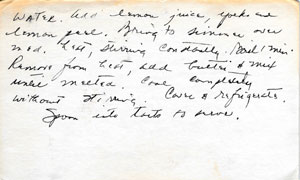 Water. Add lemon juice, yolks and
lemon peel. Bring to simmer over
med. heat, stirring constantly. Boil 1 min.
Remove from heat, add butter & mix
until melted. Cool completely
without stirring. Cover & refrigerate.
Spoon into tarts to serve.